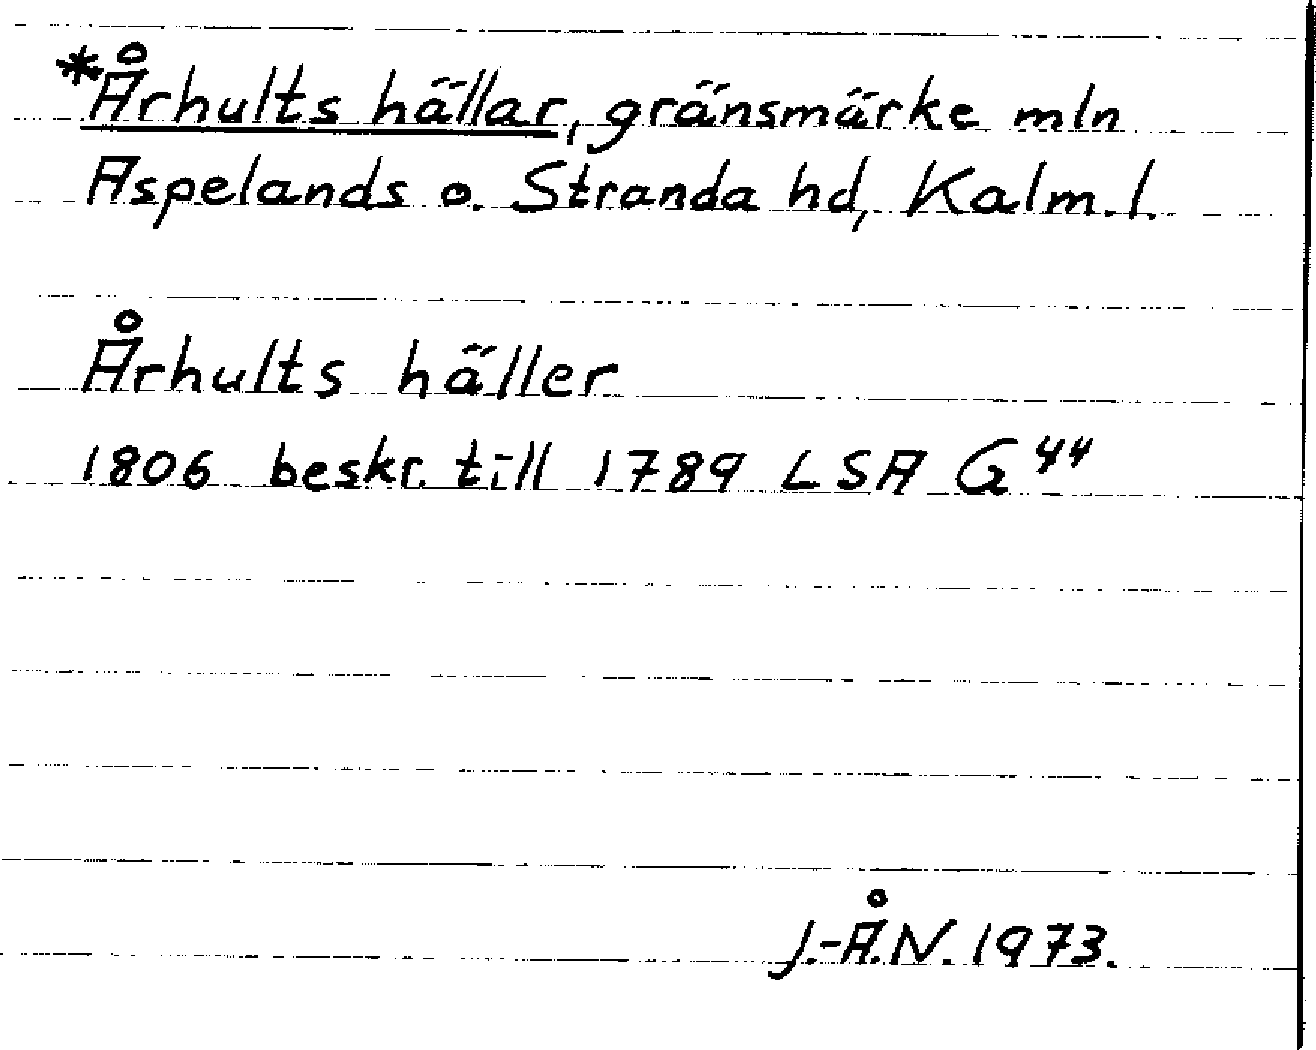 *Århults hällar, gränsmärke mln
Aspelands o. Stranda hd, Kalm. l.
Århults häller
1806 beskr. till 1789 LSA G 44
J.-Å.N. 1973.